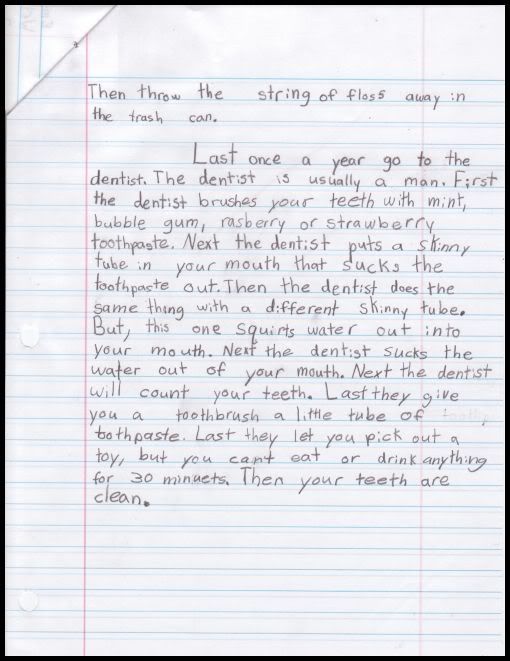 Then throw the string of floss away in
the trash can.
Last once a year go to the
dentist. The dentist is usually a man. First
the dentist brushes your teeth with mint,
bubble gum, rasberry or strawberry
toothpaste. Next the dentist puts a skinny
tube in your mouth that sucks the
toothpaste out. Then the dentist does the
same thing with a different skinny tube.
But, this one squirts water out into
your mouth. Next the dentist sucks the
water out of your mouth. Next the dentist
will count your teeth. Last they give
you a toothbrush a little tube of
toothpaste. Last they let you pick out a
toy, but you cant eat or drink anything
for 30 minuets. Then your teeth are
clean.